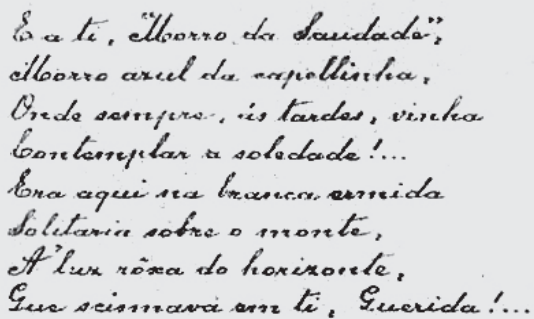 E a ti, "Morro da Saudade",
Morro azul da capellinha,
Onde sempre, ás tardes, vinha
Contemplar a soledade!...
Era aqui na branca ermida
Solitaria sobre o monte,
A' luz rôxa do horizonte,
Que scismava em ti, Querida!...